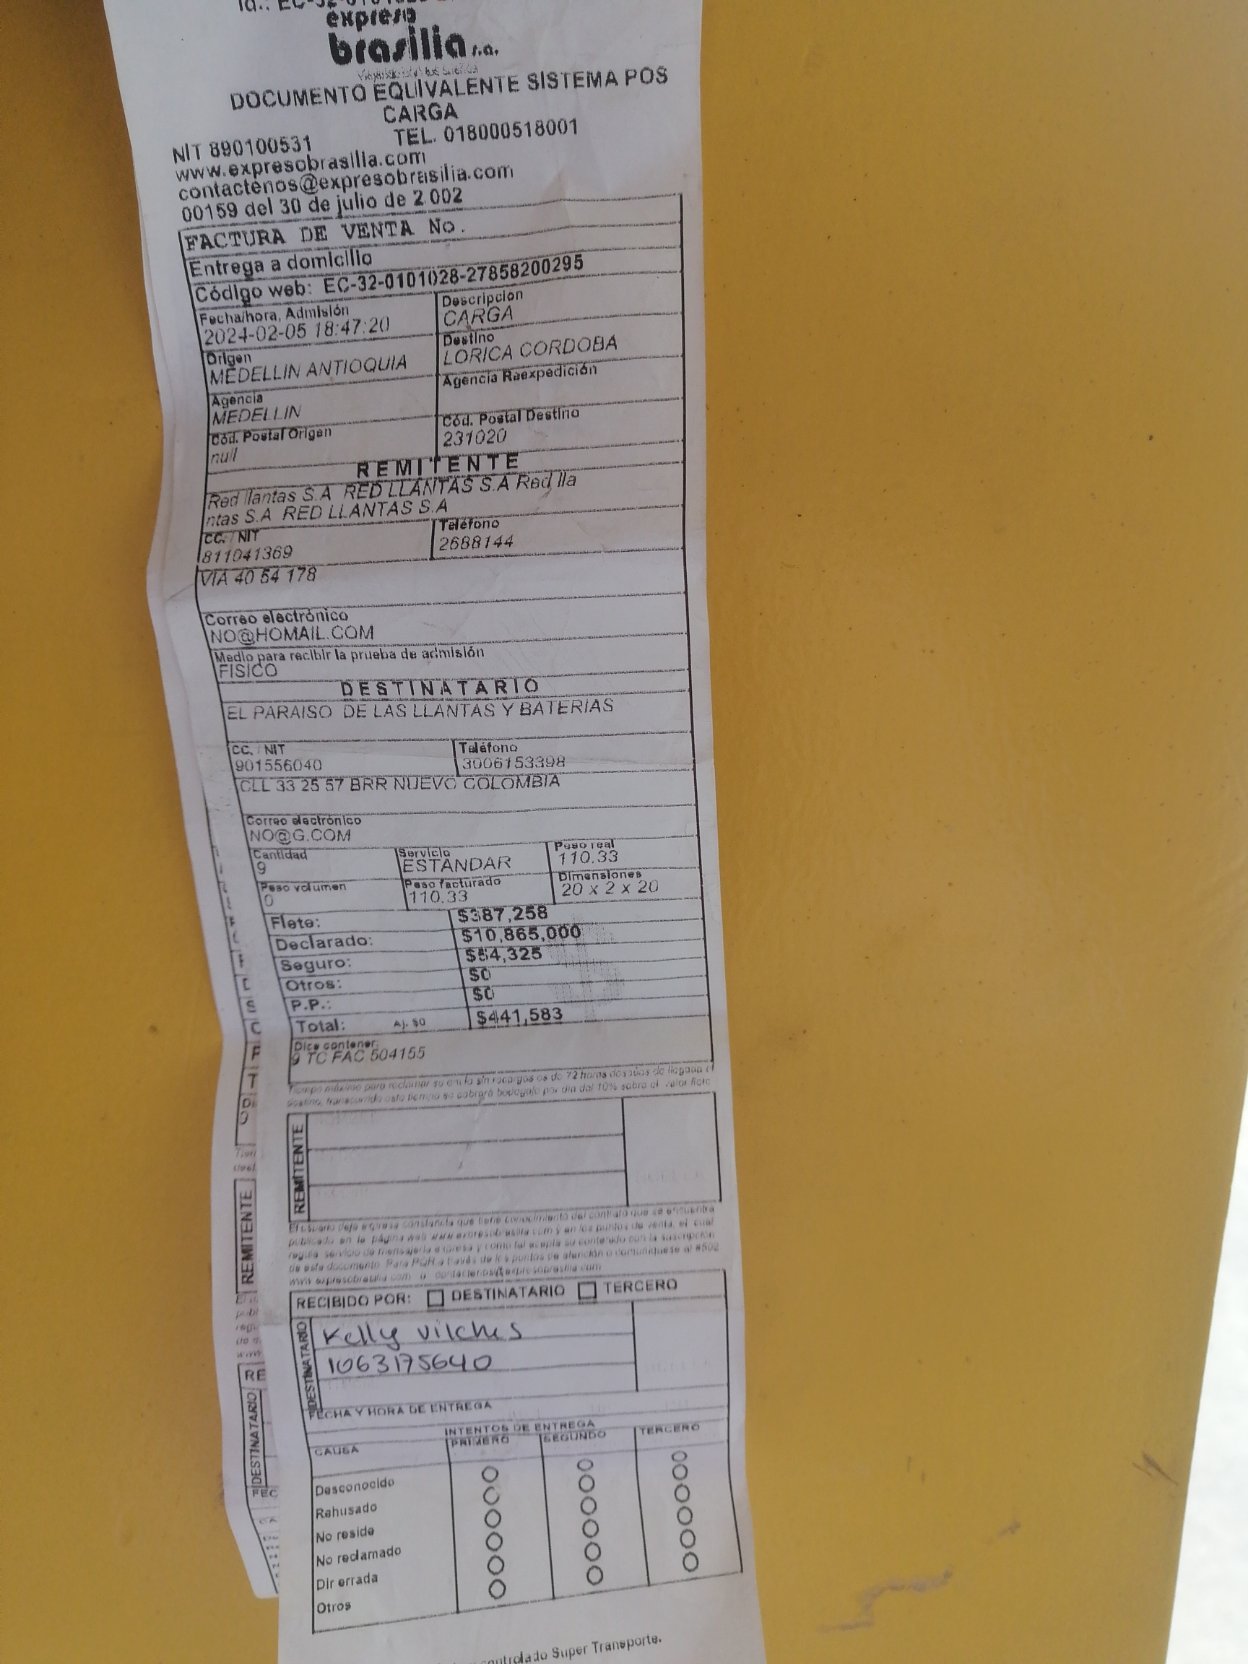 expreso
brasilia s.a.
DOCUMENTO EQUIVALENTE SISTEMA POS
CARGA
NIT 890100531 TEL. 018000518001
www.expresobrasilia.com
contactenos@expresobrasilia.com
00159 del 30 de julio de 2 002
FACTURA DE VENTA No.
Entrega a domicilio
Código web: EC-32-0101028-27858200295
Fecha/hora, Admisión
2024-02-05 18:47:20
Descripcion
CARGA
Origen
MEDELLIN ANTIOQUIA
Destino
LORICA CORDOBA
Agencia
MEDELLIN
Agencia Reexpedición
Cód. Postal Origen
null
Cód. Postal Destino
231020
REMITENTE
Red llantas S.A RED LLANTAS S.A Red lla
ntas S.A RED LLANTAS S.A
CC. / NIT
811041369
Teléfono
2688144
VIA 40 54 178
Correo electrónico
NO@HOMAIL.COM
Medio para recibir la prueba de admisión
FISICO
DESTINATARIO
EL PARAISO DE LAS LLANTAS Y BATERIAS
CC. / NIT
901556040
Teléfono
3006153398
CLL 33 25 57 BRR NUEVO COLOMBIA
Correo electrónico
NO@G.COM
Cantidad
9
Servicio
ESTANDAR
Peso real
110.33
Peso volumen
0
Peso facturado
110.33
Dimensiones
20 x 2 x 20
Flete: $387,258
Declarado: $10,865,000
Seguro: $54,325
Otros: $0
P.P.: $0
Total: Aj. $0 $441,583
Dice contener:
9 TC FAC 504155
Tiempo máximo para reclamar su envío sin recargos es de 72 horas después de llegada a
destino, transcurrido este tiempo se cobrará bodegaje por día del 10% sobre el valor flete
REMITENTE
El usuario deja expresa constancia que tiene conocimiento del contrato que se encuentra
publicado en la página web www.expresobrasilia.com y en los puntos de venta, el cual
regula servicio de mensajería expresa y como tal acepta su contenido con la suscripción
de este documento. Para PQR a través de los puntos de atención o comuníquese al #502
www.expresobrasilia.com o contactenos@expresobrasilia.com
RECIBIDO POR: DESTINATARIO TERCERO
DESTINATARIO
Kelly Vilches
1063175640
FECHA Y HORA DE ENTREGA
INTENTOS DE ENTREGA
CAUSA PRIMERO SEGUNDO TERCERO
Desconocido
Rehusado
No reside
No reclamado
Dir errada
Otros
controlado Super Transporte.
REMITENTE
RE
DESTINATARIO
FEC